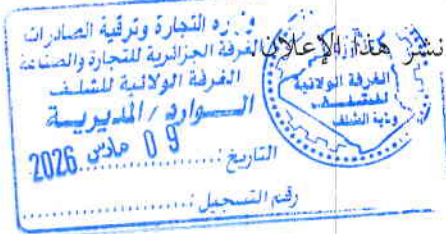 نشر هذا الإعلان
وزارة التجارة وترقية الصادرات
الغرفة الجزائرية للتجارة والصناعة
الغرفة الولائية للشلف
الـوارد / المديريـة
التاريخ : 09 مارس 2026
رقم التسجيل :
الغرفة الولائية
ولاية الشلف